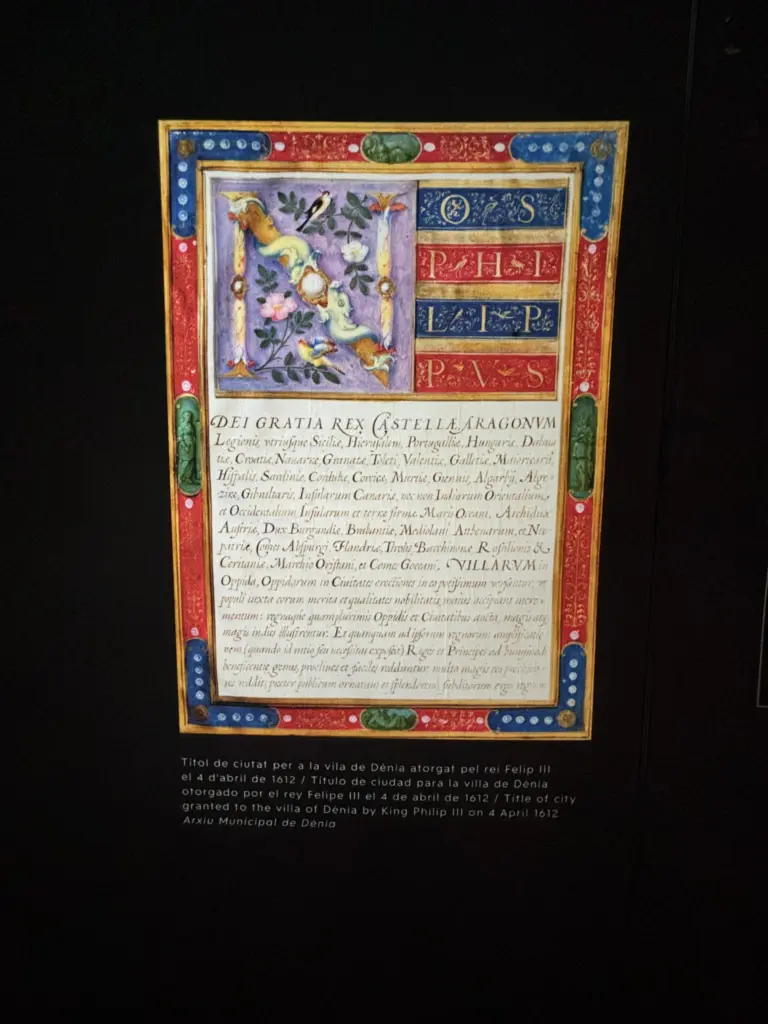 N OS
PHI
LIP
PVS
DEI GRATIA REX CASTELLÆ ARAGONVM
Legionis, vtriusque Siciliæ, Hierusalem, Portugalliæ, Hungariæ, Dalma
tiæ, Croatiæ, Nauarræ, Granatæ, Toleti, Valentiæ, Galletiæ, Maioricarũ,
Hispalis, Sardiniæ, Cordubæ, Corsicæ, Murtiæ, Giennis, Algarbij, Alge-
ziræ, Gibraltaris, Insularum Canariæ, nec non Indiarum Orientalium,
et Occidentalium, Insularum et terræ firmæ Maris Oceani, Archidux
Austriæ, Dux Burgundiæ, Brabantiæ, Mediolani Athenarum, et Neo
patriæ, Comes Abspurgi, Flandriæ, Tirolis, Barchinonæ, Rosilionis &
Ceritaniæ, Marchio Oristani, et Comes Goceani, VILLARVM in
Oppida, Oppidorum in Ciuitates erectiones in eo potissimum versantur, vt
populi iuxta eorum merita et qualitates nobilitatis maius incipiant incre-
mentum: regnaque quamplurimis Oppidis et Ciuitatibus aucta, magis ac
magis indies illustrentur. Et quanquam ad ipsorum regnorum amplificatio
nem (quando id ratio seu necessitas exposcit) Reges et Principes ad huiusmodi
beneficentiæ genus, procliues et faciles reddantur multo magis
reddit: præter publicum ornatum et splendorem, subditorum ergo regium
Títol de ciutat per a la vila de Dénia atorgat pel rei Felip III
el 4 d'abril de 1612 / Título de ciudad para la villa de Dénia
otorgado por el rey Felipe III el 4 de abril de 1612 / Title of city
granted to the villa of Dénia by King Philip III on 4 April 1612
Arxiu Municipal de Dénia